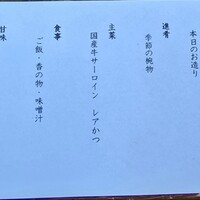 本日のお造り
進肴
季節の椀物
主菜
国産牛サーロイン レアかつ
食事
ご飯・香の物・味噌汁
甘味